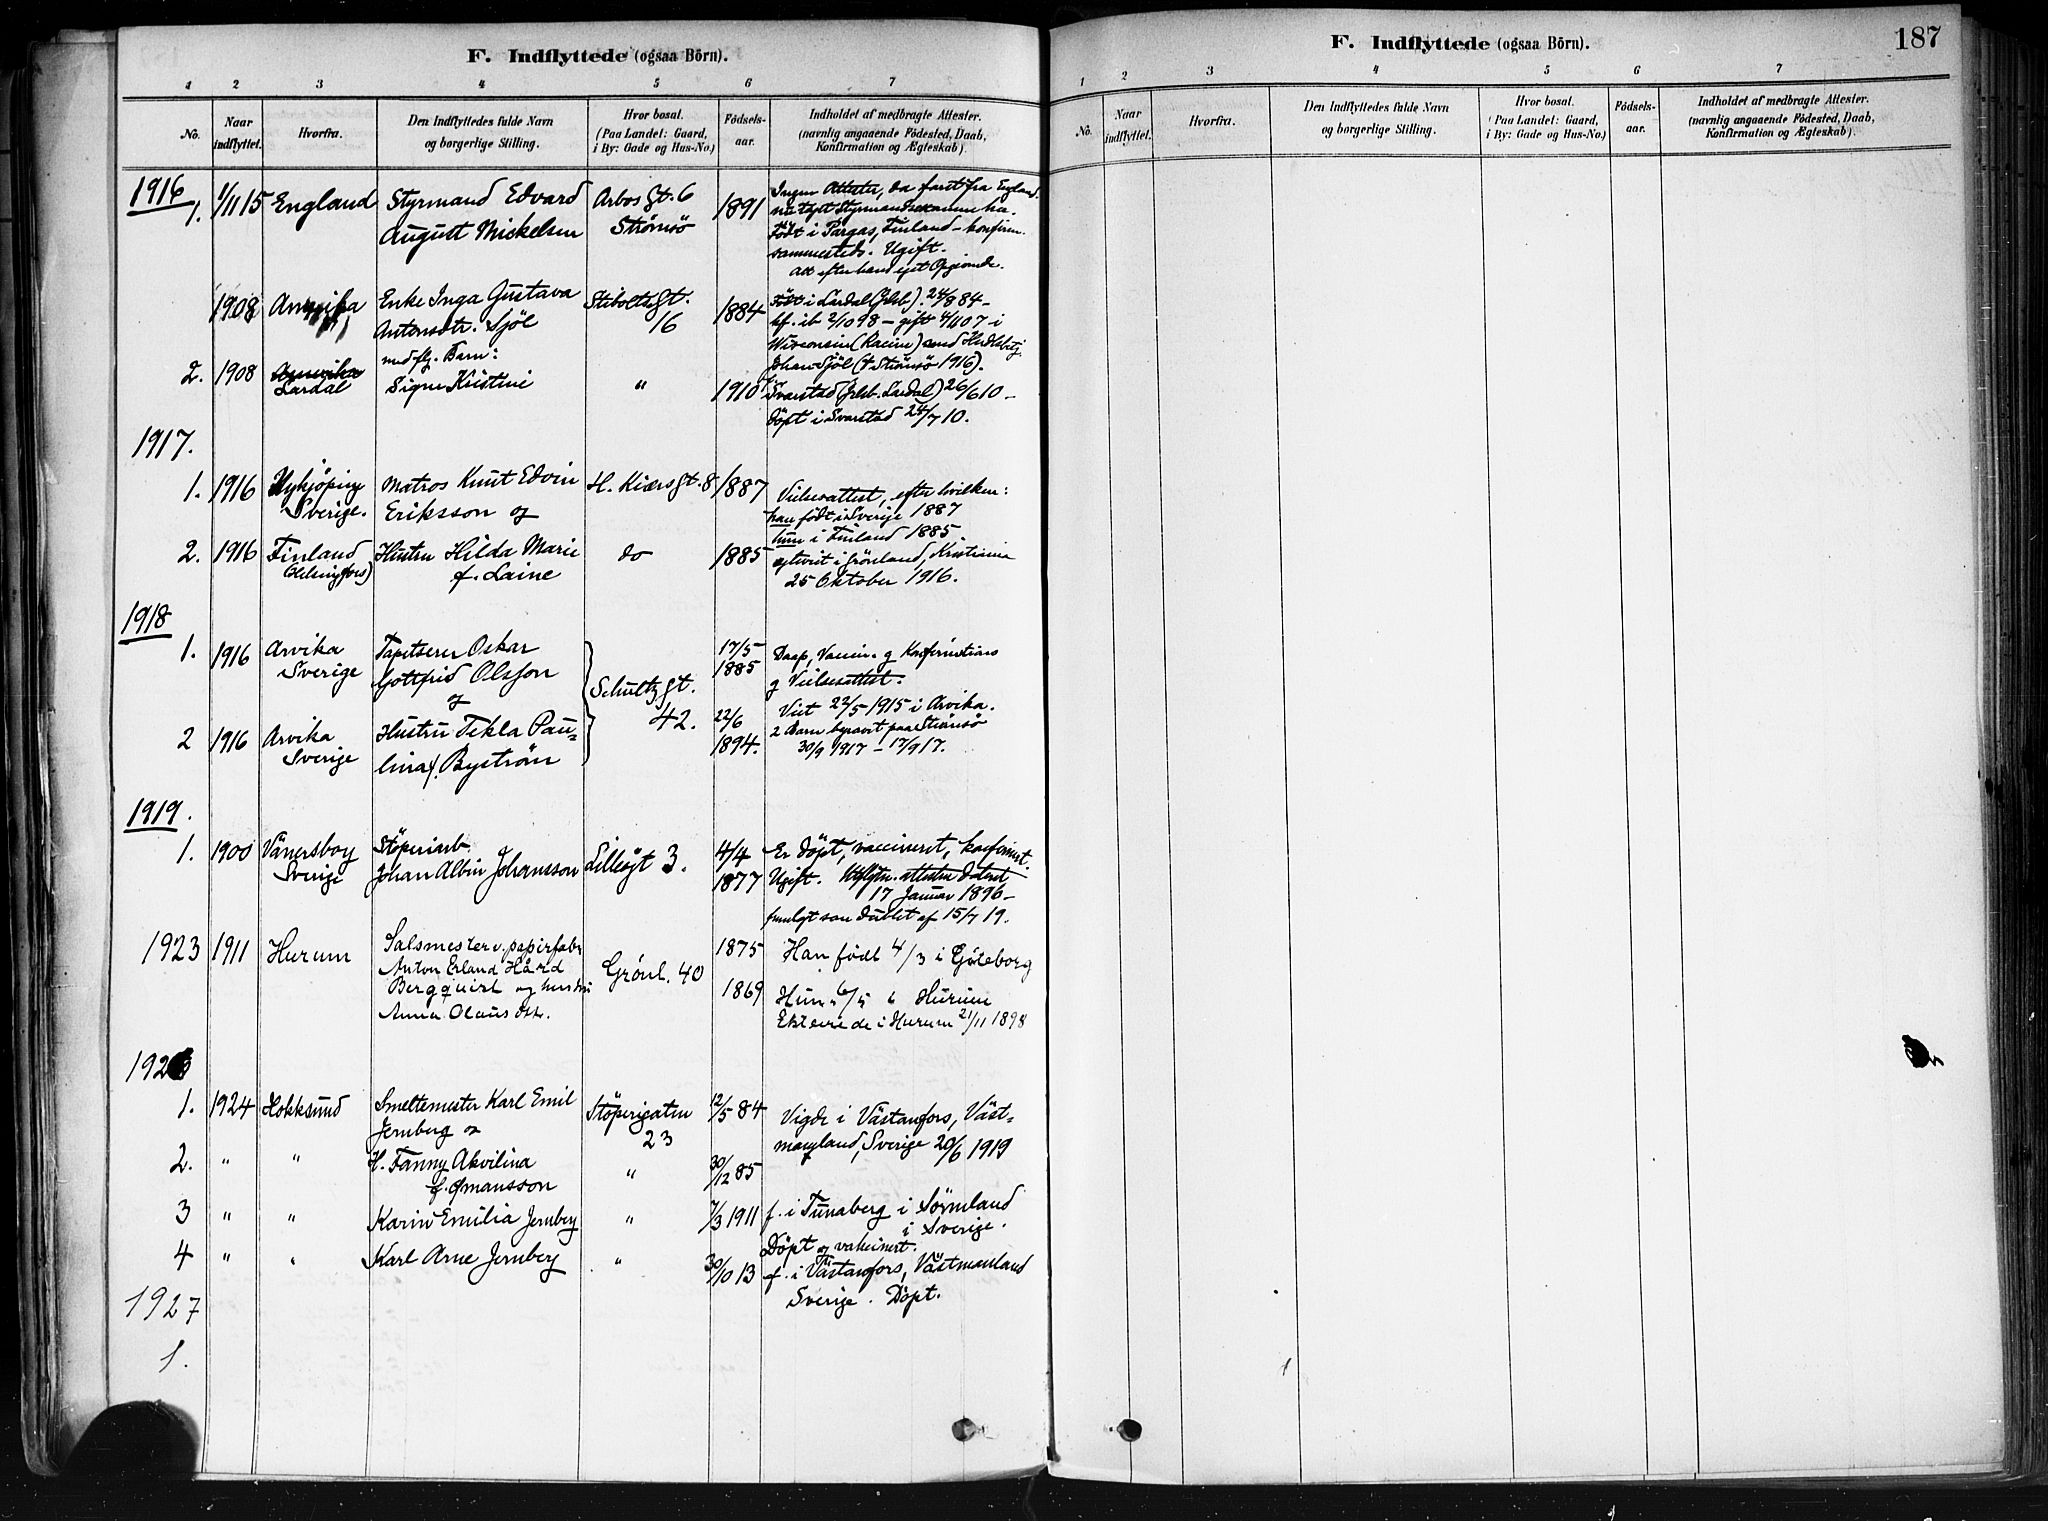 F. Indflyttede (ogsaa Börn).
1 2 3 4 5 6 7
No.
Naar indflyttet.
Hvorfra.
Den Indflyttedes fulde Navn
og borgerlige Stilling.
Hvor bosat.
(Paa Landet: Gaard,
i By: Gade og Hus-No.)
Födsels-
aar.
Indholdet af medbragte Attester.
(navnlig angaaende Födested, Daab,
Konfirmation og Ægteskab).
1916
1. 1/11 15 England Styrmand Edvard Arbos Gt. 6 1891 Ingen Attester, da faret fra England.
August Mickelsen Strømsö
Født i Pargas, Finland – konfirm.
sammesteds. Ugift.
Alt efter hans eget Opgivende.
1908 Amerika Enke Inga Gustava Stiboltsgt. 1884 Født i Lardal (Jrlsb). 24/8 84 –
Antonsdtr. Sjöl 16 kf. ib 2/10 98 – gift 4/11 07 i
Wisconsin (Racine) med
med flg. Barn: Johan Sjöl († Strömsö 1916).
2. 1908 Amerika Lardal Signe Kristine " 1910 Svarstad (Jrlsb. Lardal) 26/6 10 –
Döpt i Svarstad 24/7 10.
1917.
1. 1916 Nykjöping Matros Knut Edvin H. Kiærs Gt. 8 1887 Vielsesattest, efter hvilken:
Sverige. Eriksson og han født i Sverige 1887
hun i Finland 1885.
2. 1916 Finland Hustru Hilda Marie do 1885 i Grönland, Kristiania
(Helsingfors) f. Laine 25 Oktober 1916.
1918
1. 1916 Arvika Tapetserer Oskar 17/5 Daap, Vaccin. og Konfirmations
Sverige Gottfrid Olsson 1885 og Vielsesattest.
og Schultz gt. 42. Viet 22/5 1915 i Arvika.
2 1916 Arvika Hustru Tekla Pau- 22/6 2 Barn begravet paa Strömsö
Sverige lina f. Byström 1894. 30/9 1917 – 17/9 17.
1919.
1. 1900 Vänersborg Stöperiarb. Lillesgt 3. 4/4 Er döpt, vaccineret, konfirmert.
Sverige Johan Albin Johansson 1877 Ugift. Utflytn. attesten dateret
17 Januar 1896 –
fremlagt som dublet af 15/7 19.
1923 1911 Hurum Salsmester v. papirfabr 1875 Han født 4/3 i Göteborg
Anton Erland Hård Grönl. 40
Bergquist og hustru 1869 Hun " 6/5 i Hurum
Anna Olausdtr. Ektevie de i Hurum 21/11 1898
192
1. 1924 Hokksund Smeltemester Karl Emil Stöperigaten 12/5 84 Vigde i Västanfors, Väst-
Jernberg og 23 manland, Sverige 20/6 1919
2. " " H. Fanny Akvilina " 30/12 85
3 " " Karin Emilia Jernberg " 7/3 1911 f. i Tunaberg i Sörmland
i Sverige.
Döpt og vakcinert.
4 " " Karl Arne Jernberg " 30/10 13 f. i Västanfors, Västmanland
Sverige. Döpt.
1927
1.
F. Indflyttede (ogsaa Börn).
187
1 2 3 4 5 6 7
No.
Naar indflyttet.
Hvorfra.
Den Indflyttedes fulde Navn
og borgerlige Stilling.
Hvor bosat.
(Paa Landet: Gaard,
i By: Gade og Hus-No.)
Födsels-
aar.
Indholdet af medbragte Attester.
(navnlig angaaende Födested, Daab,
Konfirmation og Ægteskab).